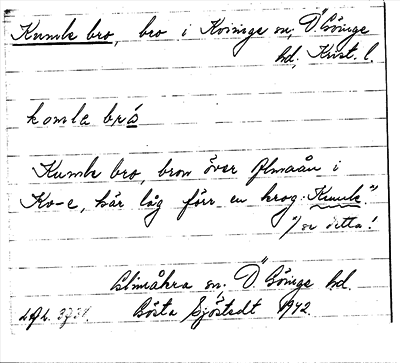 Kumle bro, bro i Kviinge sn, Ö. Göinge
hd, Krist. l.
komle bró
Kumle bro, bron över Almaån i
Kv-e, här låg förr en krog "Kumle."
1/ se detta!
Glimåkra sn, Ö. Göinge hd.
Gösta Sjöstedt 1942.